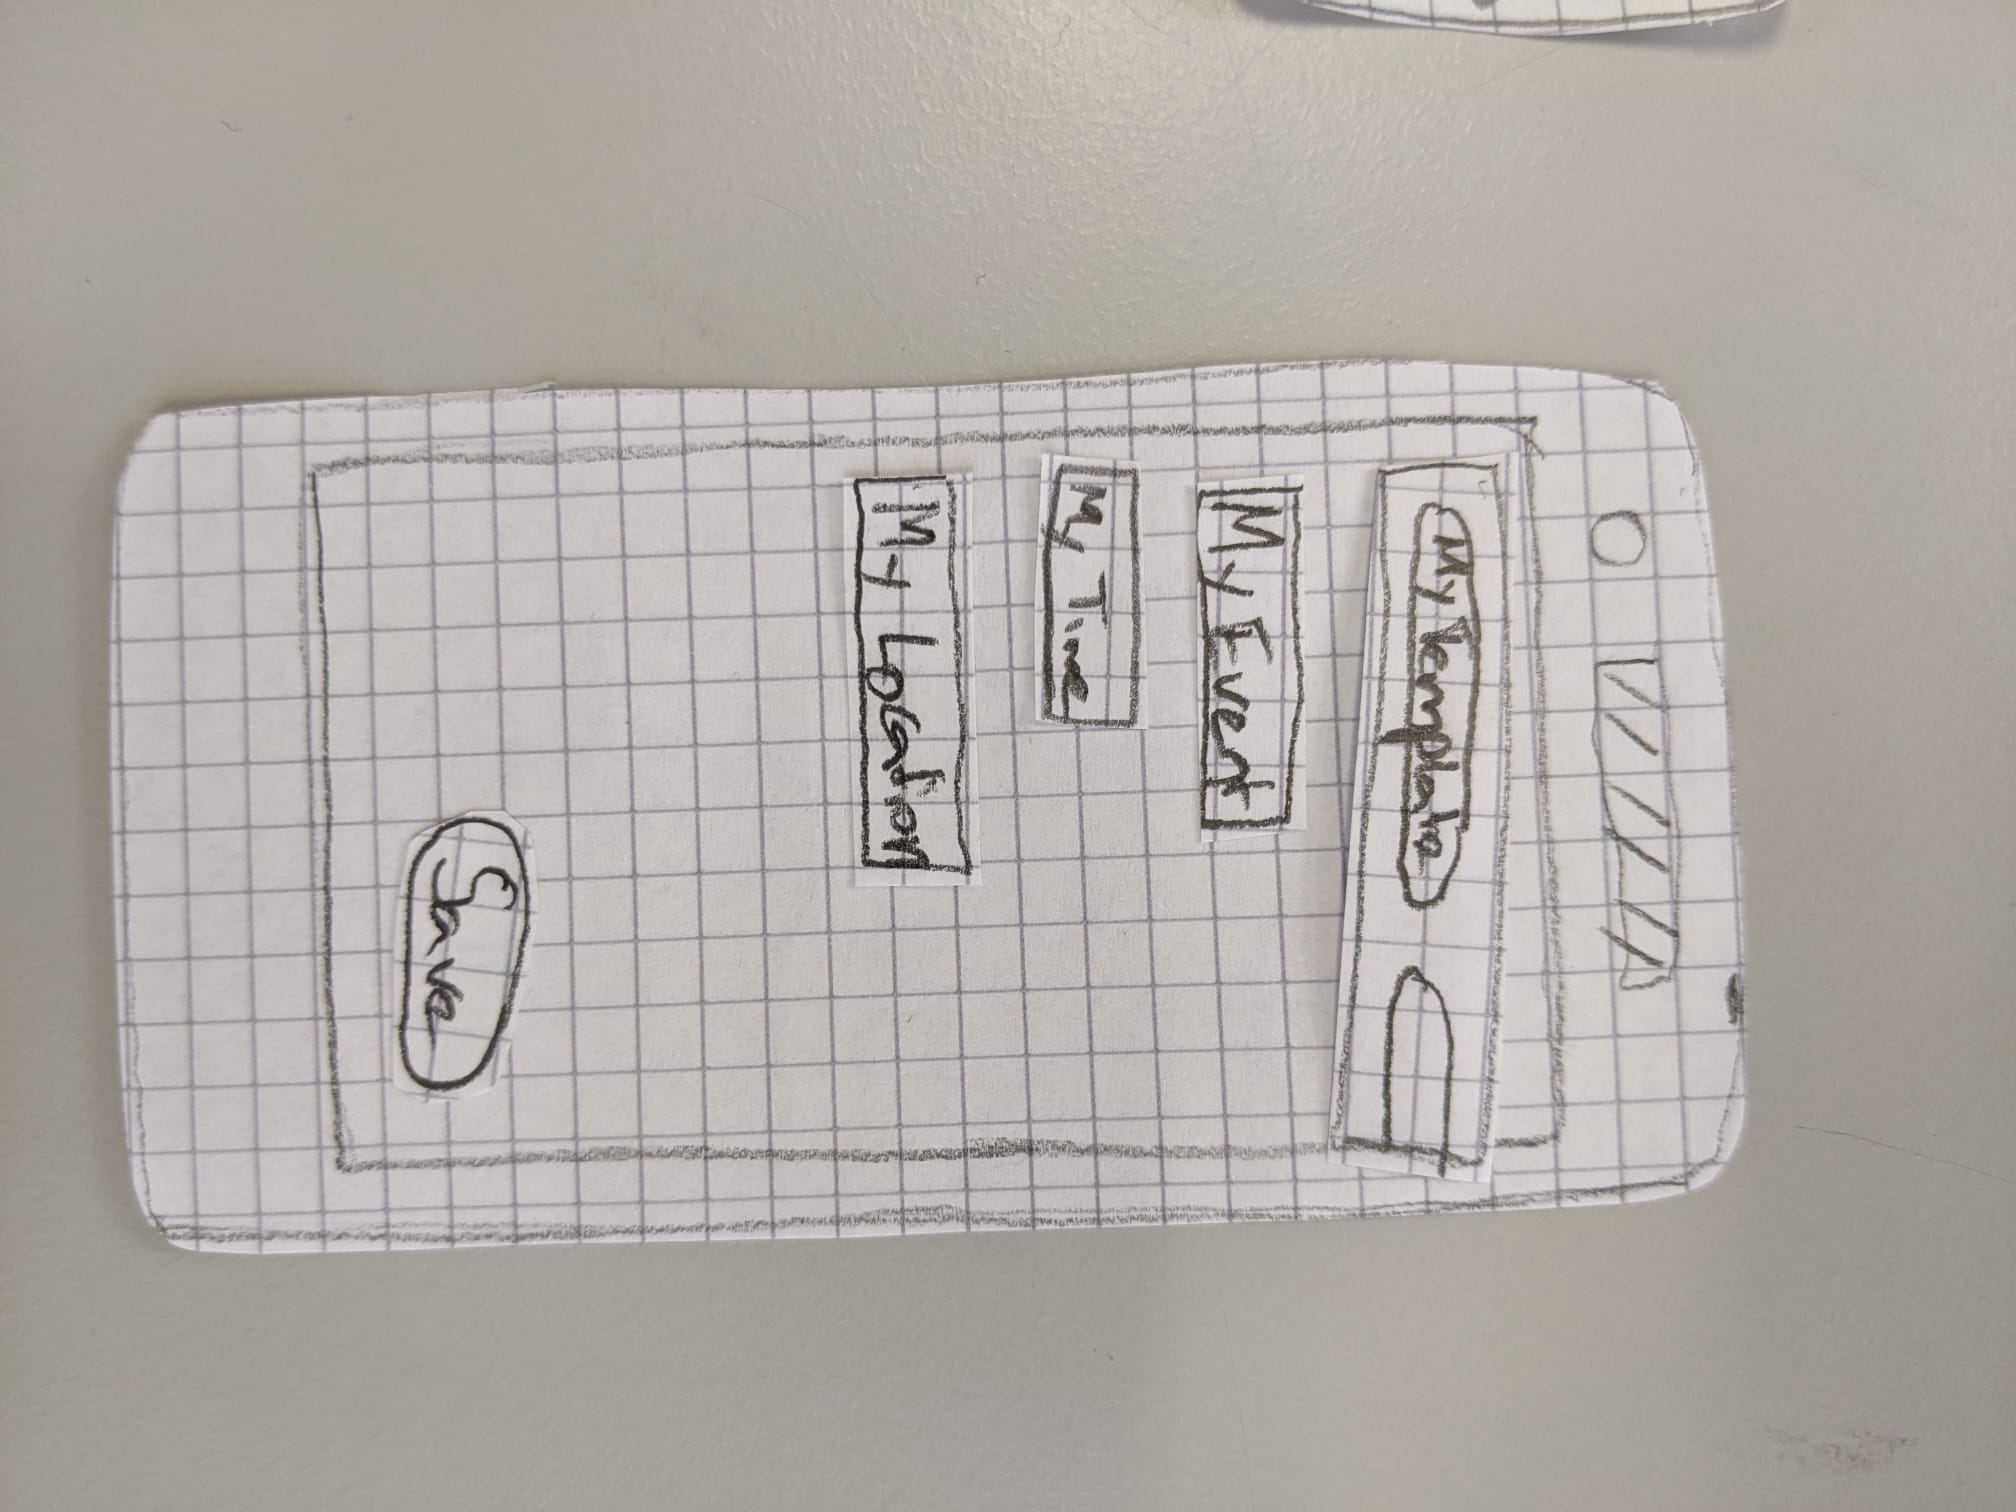 My Template
My Event
My Time
My Location
Save